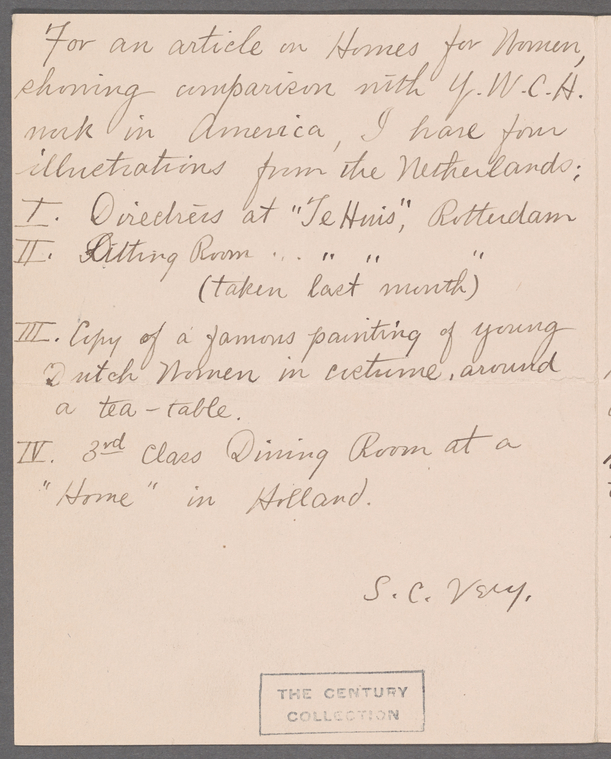 For an article on Homes for Women,
showing comparison with Y.W.C.A.
work in America, I have four
illustrations from the Netherlands:
I. Directress at "Te Huis", Rotterdam
II. Sitting Room " " " "
(taken last month)
III. Copy of a famous painting of young
Dutch Women in costume, around
a tea-table.
IV. 3rd Class Dining Room at a
"Home" in Holland.
S. C. Very.
THE CENTURY
COLLECTION